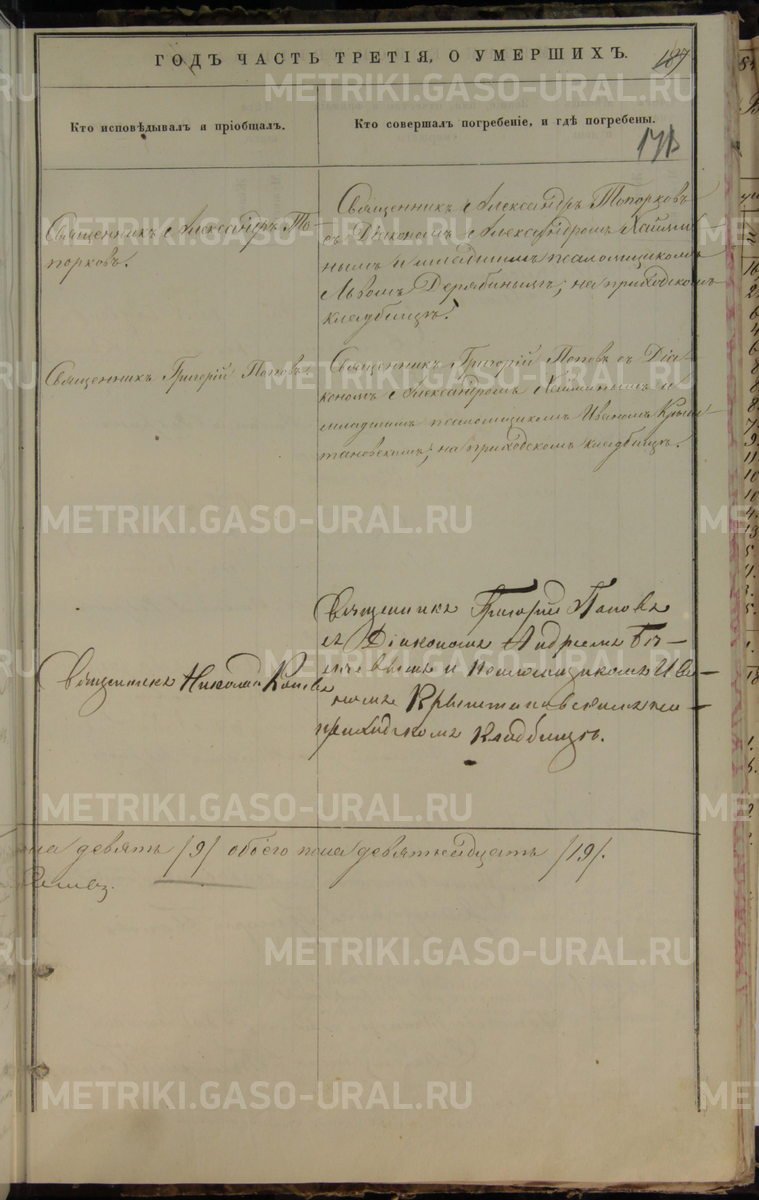 ГОДЪ ЧАСТЬ ТРЕТІЯ, О УМЕРШИХЪ.
187
Кто исповѣдывалъ и пріобщалъ.
Кто совершалъ погребеніе, и гдѣ погребены.
171
Священникъ Александръ То-
порковъ.
Священникъ Александръ Топорковъ
съ Діакономъ Александромъ
нымъ и младшимъ псаломщикомъ
Львомъ Дерябинымъ; на приходскомъ
кладбищѣ.
Священникъ Григорій Поповъ.
Священникъ Григорій Поповъ съ Діа-
кономъ Александромъ и
младшимъ псаломщикомъ Иваномъ Крыш-
тановскимъ; на приходскомъ кладбищѣ.
Священникъ Николай
Священникъ Григорій Поповъ
съ Діакономъ Андреемъ
и псаломщикомъ Ива-
номъ Крыштановскимъ на
приходскомъ кладбищѣ.
девять /9/ обоего пола девятнадцать /19/.
METRIKI.GASO-URAL.RU